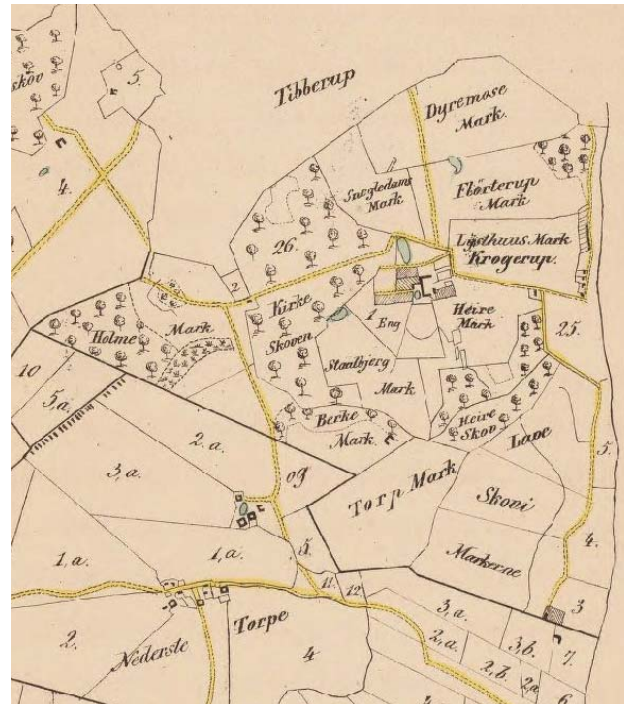 skov
5.
Tibberup
Dyremose
Mark.
4.
Snegledams
Mark
Flörterup
Mark
26.
Lysthuus Mark
Krogerup.
2
Kirke
Skoven
1
Eng
Heire
Mark
25.
Holme
Mark
10
5,a.
Staalbjerg
Mark
Berke
Mark
Heire
Skov
Lave
5.
2,a.
3,a.
og
Torp Mark
Skovi
4.
1,a.
1,a.
5.
Markerne
11.
12
3
2.
Nederste
Torpe
4
3,a.
2,a.
3,b.
7.
2,b.
2,a
6
4